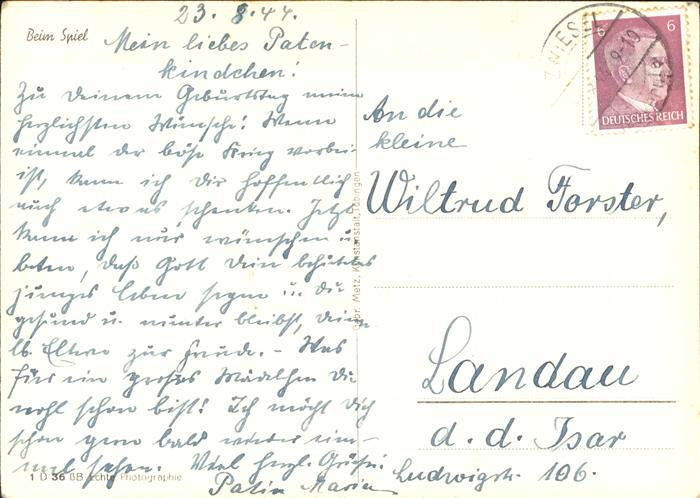 23. 8. 44.
Beim Spiel
Mein liebes Paten-
kindchen!
Zu Deinem Geburtstag meine
herzlichsten Wünsche! Wenn
einmal der böse Krieg vorbei
ist, kann ich Dir hoffentlich
auch etwas schenken. Jetzt
kann ich nur wünschen u.
beten, daß Gott Dein behütetes
junges Leben segne u. Du
gesund u. munter bleibst, Deinen
lb. Eltern zur Freude. - Was
für ein großes Mädelchen Du
wohl schon bist! Ich möcht Dich
schon gern bald wieder ein-
mal sehen. Viel herzl. Grüße!
Patin Maria
1 D 36 BB Echte Photographie
Gebr. Metz, Kunstanstalt, Tübingen
ZWIESEL
9-10
6 6
DEUTSCHES REICH
An die
kleine
Wiltrud Forster,
Landau
a. d. Isar
Ludwigstr. 106.